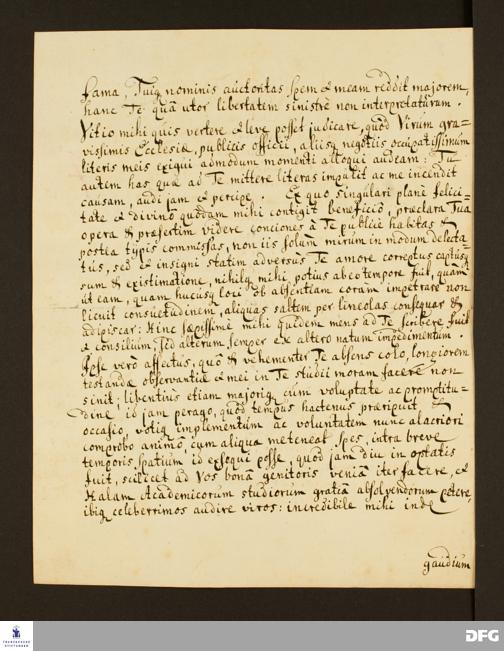 fama, Tuiq nominis auctoritas spem et meam reddit majorem,
hanc Te quâ utor libertatem sinistrè non interpretaturum.
Vitio mihi quis vertere et leve posset judicare, quòd Virum gra=
vissimis Ecclesiæ, publicis officii, aliisq negotiis occupatissimum
literis meis exigui admodum momenti alloqui audeam: Tu
autem has quæ ad Te mittere literas impulit ac me incendit
causam, audi jam et percipe. Ex quo singulari planè felici=
tate et divino quodam mihi contigit beneficiô, præclara Tua
opera & præsertim videre conciones à Te publicè habitas &
postea typis commissas, non iis solum mirum in modum delecta=
tus, sed et insigni statim adversus Te amore correptus captusq
sum & existimatione, nihilq mihi potius ab eo tempore fuit, quàm
ut eam, quam hucusq loci ob absentiam coràm impetrare non
licuit consuetudinem, aliquas saltem per lineolas consequar &
adipiscar: Hinc sæpissimè mihi quidem mens ad Te scribere fuit
et consilium, sed alterum semper ex altero natum impedimentum.
Ipse verò affectus, quô & vehementer Te absens colo, longiorem
testandæ observantiæ et mei in Te studii moram facere non
sinit; libentius etiam majoriq cum voluptate ac promptitu=
dine id jam perago, quòd tempus hactenus præripuit &
occasio, votiq implementum ac voluntatem nunc alacriori
comprobo animô, cùm aliqua me teneat spes, intra breve
temporis spatium id exsequi posse, quod jam diu in optatis
fuit, scilicet ad Vos bonâ genitoris veniâ iter facere, et
Halam Academicorum studiorum gratiâ absolvendorum petere,
ibiq celeberrimos audire viros: incredibile mihi inde
gaudium
FRANCKESCHE
STIFTUNGEN
DFG